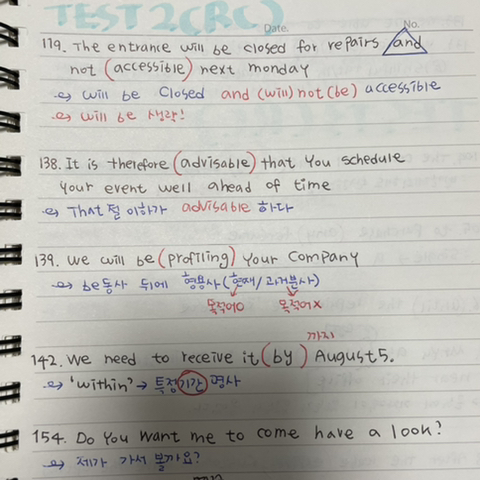 TEST 2 (RC)
Date.
No.
119. The entrance will be closed for repairs and
not (accessible) next monday
→ will be closed and (will) not (be) accessible
→ will be 생략!
138. It is therefore (advisable) that you schedule
your event well ahead of time
→ That절 이하가 advisable 하다
139. we will be (profiling) your company
→ be동사 뒤에 형용사 (현재/과거분사)
목적어O 목적어X
까지
142. We need to receive it (by) August 5.
→ 'within' → 특정기간 명사
154. Do you want me to come have a look?
→ 제가 가서 볼까요?